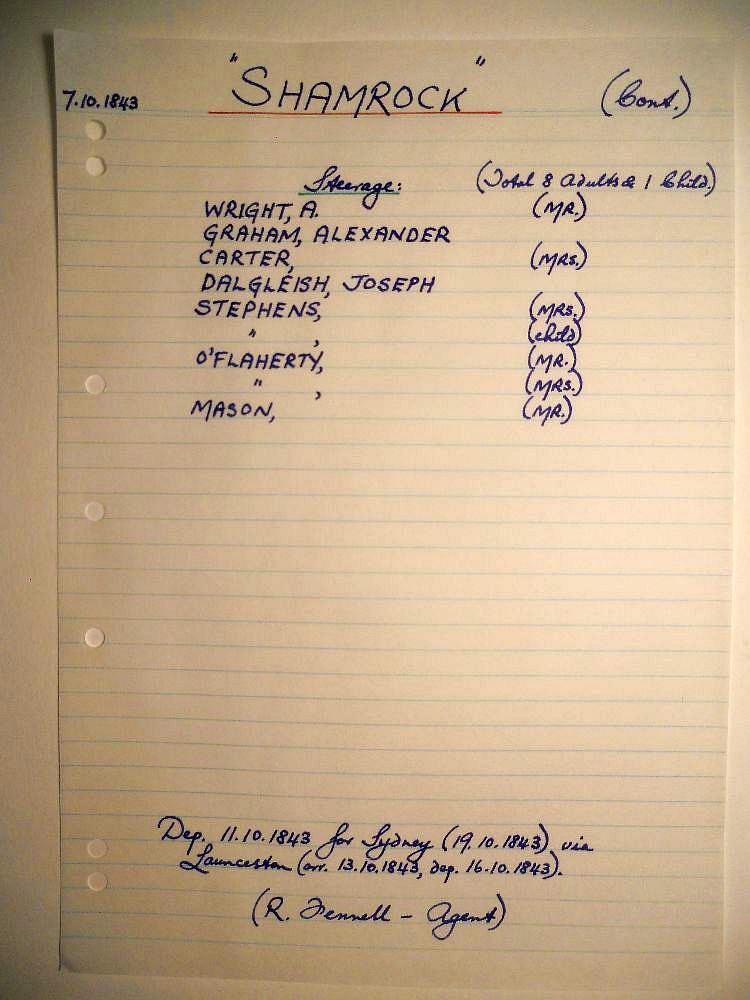 7.10.1843 "SHAMROCK" (Cont.)
Steerage: (Total 8 Adults & 1 Child.)
WRIGHT, A. (MR.)
GRAHAM, ALEXANDER
CARTER, (MRS.)
DALGLEISH, JOSEPH
STEPHENS, (MRS.)
" , (child)
O'FLAHERTY, (MR.)
" , (MRS.)
MASON, (MR.)
Dep. 11.10.1843 for Sydney (19.10.1843) via
Launceston (arr. 13.10.1843, dep. 16.10.1843).
(R. Fennell - Agent)